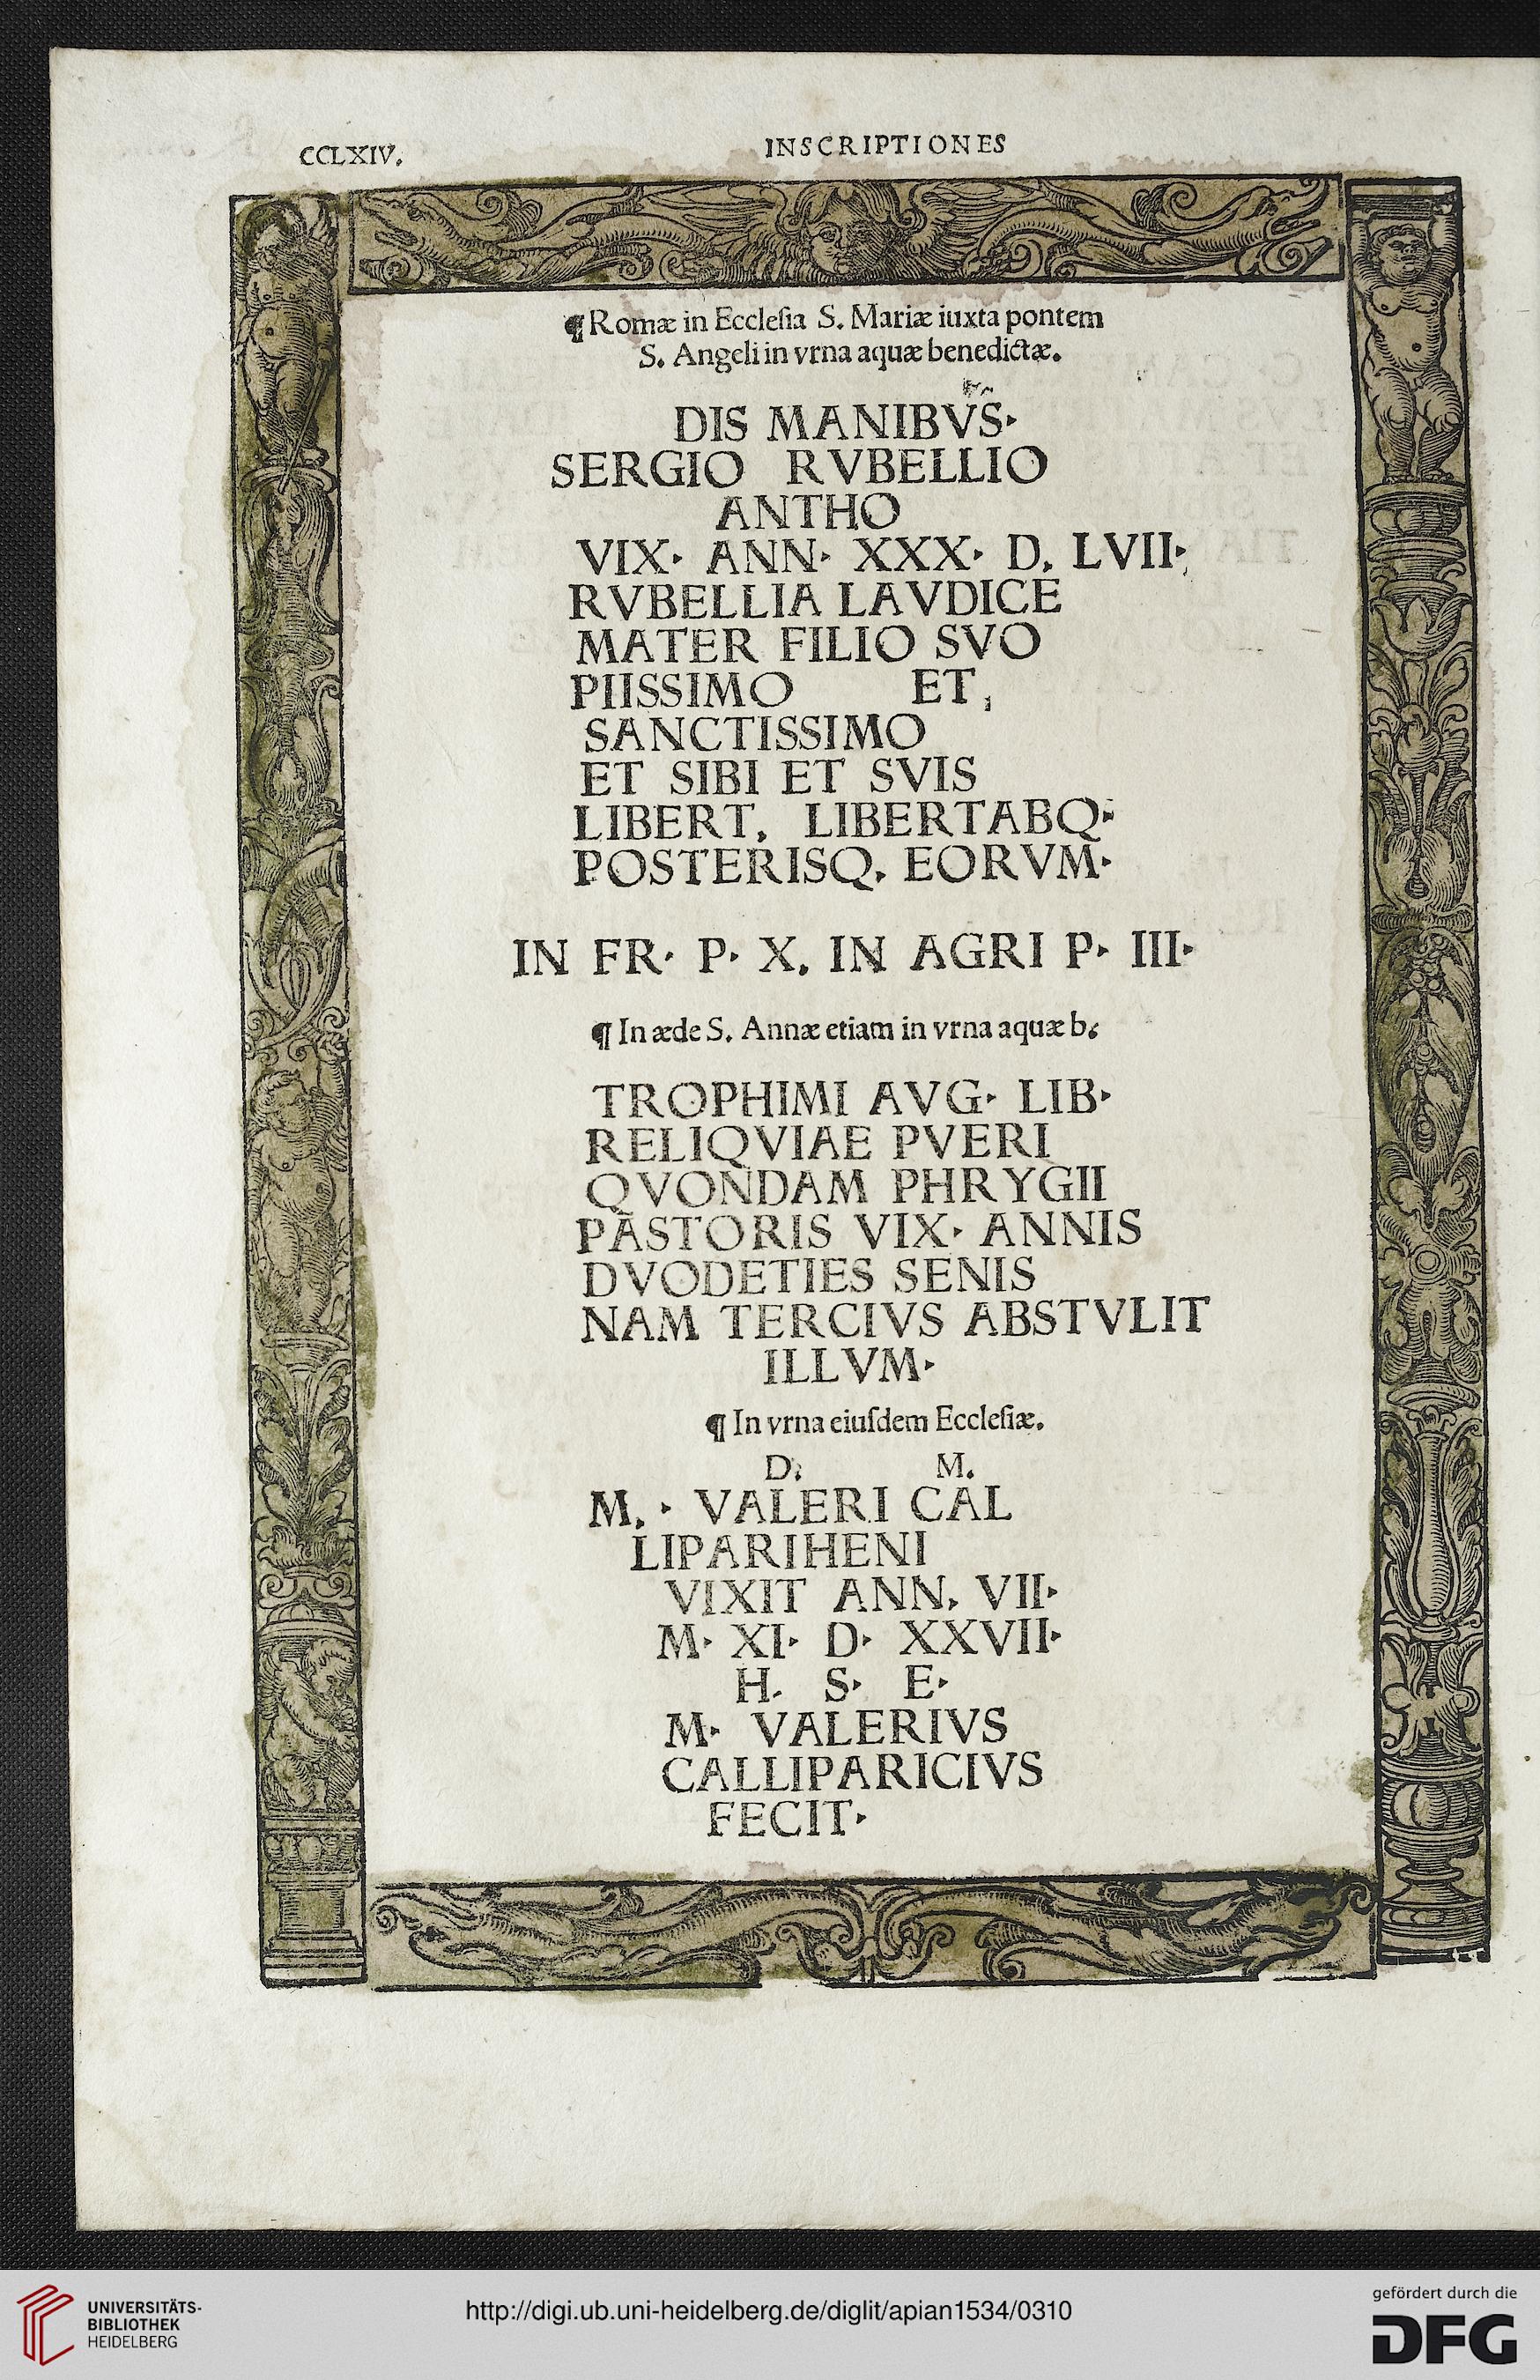 CCLXIV.
INSCRIPTIONES
¶ Romæ in Eccleſia S. Mariæ iuxta pontem
S. Angeli in vrna aquæ benedictæ.
DIS MANIBVS·
SERGIO RVBELLIO
ANTHO
VIX· ANN· XXX· D. LVII·
RVBELLIA LAVDICE
MATER FILIO SVO
PIISSIMO ET
SANCTISSIMO
ET SIBI ET SVIS
LIBERT. LIBERTABQ·
POSTERISQ. EORVM·
IN FR· P· X. IN AGRI P· III·
¶ In æde S. Annæ etiam in vrna aquæ b.
TROPHIMI AVG· LIB·
RELIQVIAE PVERI
QVONDAM PHRYGII
PASTORIS VIX· ANNIS
DVODETIES SENIS
NAM TERCIVS ABSTVLIT
ILLVM·
¶ In vrna eiuſdem Eccleſiæ.
D. M.
M. · VALERI CAL
LIPARIHENI
VIXIT ANN. VII·
M· XI· D· XXVII·
H. S· E·
M· VALERIVS
CALLIPARICIVS
FECIT·
UNIVERSITÄTS-
BIBLIOTHEK
HEIDELBERG
http://digi.ub.uni-heidelberg.de/diglit/apian1534/0310
gefördert durch die
DFG